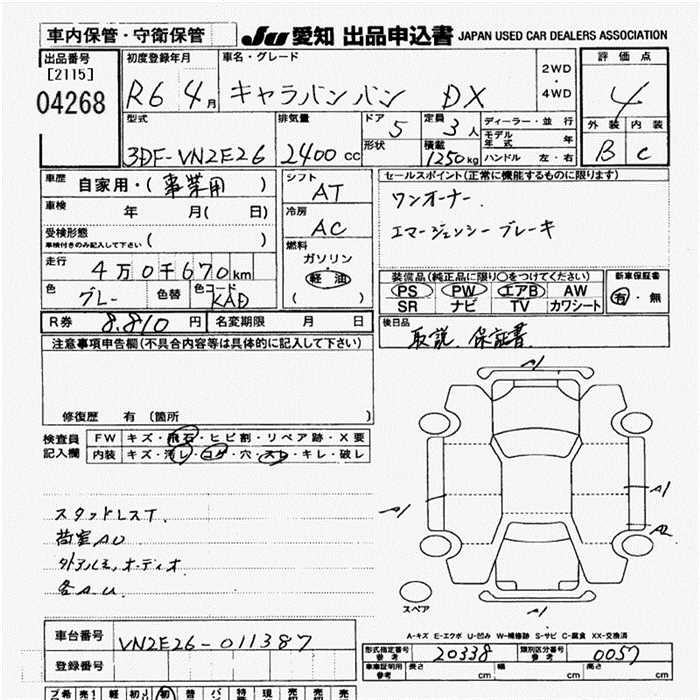 車内保管・守衛保管
JU 愛知 出品申込書 JAPAN USED CAR DEALERS ASSOCIATION
出品番号
[2115]
04268
初度登録年月
R6 4月
車名・グレード
キャラバンバン DX
2WD
・
4WD
評価点
4
外装 内装
B C
型式
3DF-VN2E26
排気量
2400 cc
ドア
5
形状
定員
3人
積載
1250kg
ディーラー・並行
モデル年式 年
ハンドル 左・右
車歴 自家用・(事業用)
車検 年 月(日)
受検形態
車検付きのみ記入して下さい ( )
走行 4万0千670km
色 グレー 色替 色コード KAD
シフト
AT
冷房
AC
燃料
ガソリン
(軽油)
セールスポイント(正常に機能するものに限ります)
ワンオーナー.
エマージェンシーブレーキ
装備品(純正品に限り○をつけてください)
PS PW エアB AW
SR ナビ TV カワシート
新車保証書
有・無
R券 8.810円 名変期限 月 日
後日品
取説. 保証書
注意事項申告欄(不具合内容等は具体的に記入して下さい)
修復歴 有 (箇所 )
検査員
記入欄
FW キズ・飛石・ヒビ割・リペア跡・X要
内装 キズ・汚レ・コゲ・穴・スレ・キレ・破レ
スタッドレスT.
荷室AU
外アルミ,オーディオ
各A.U.
A1
A1
A1
A2
A1
スペア
A-キズ E-エクボ U-凹み W-補修跡 S-サビ C-腐食 XX-交換済
車台番号 VN2E26-011387
登録番号
型式指定番号
参考
20338
類別区分番号
参考
0057
車庫証明用
参考
長さ cm 幅 cm 高さ cm